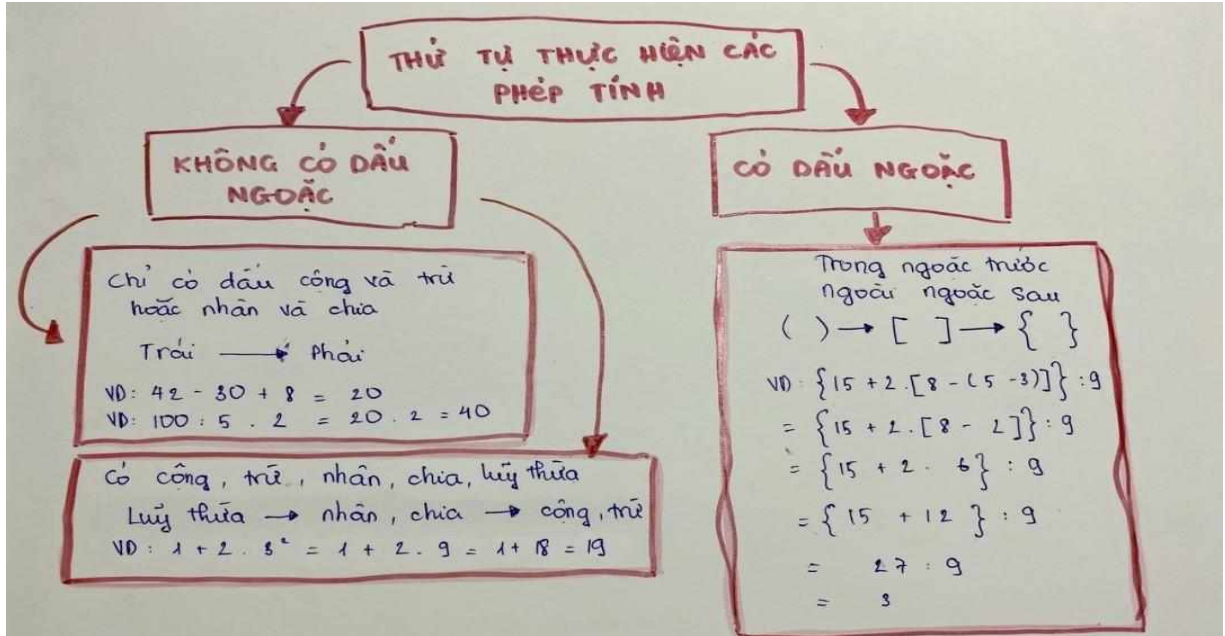 THỨ TỰ THỰC HIỆN CÁC
PHÉP TÍNH
KHÔNG CÓ DẤU
NGOẶC
CÓ DẤU NGOẶC
Chỉ có dấu cộng và trừ
hoặc nhân và chia
Trái → Phải
VD: 42 - 30 + 8 = 20
VD: 100 : 5 . 2 = 20 . 2 = 40
Có cộng, trừ, nhân, chia, luỹ thừa
Luỹ thừa → nhân, chia → cộng, trừ
VD: 1 + 2 . 3² = 1 + 2 . 9 = 1 + 18 = 19
Trong ngoặc trước
ngoài ngoặc sau
( ) → [ ] → { }
VD: {15 + 2 . [8 - (5 - 3)]} : 9
= {15 + 2 . [8 - 2]} : 9
= {15 + 2 . 6} : 9
= {15 + 12} : 9
= 27 : 9
= 3